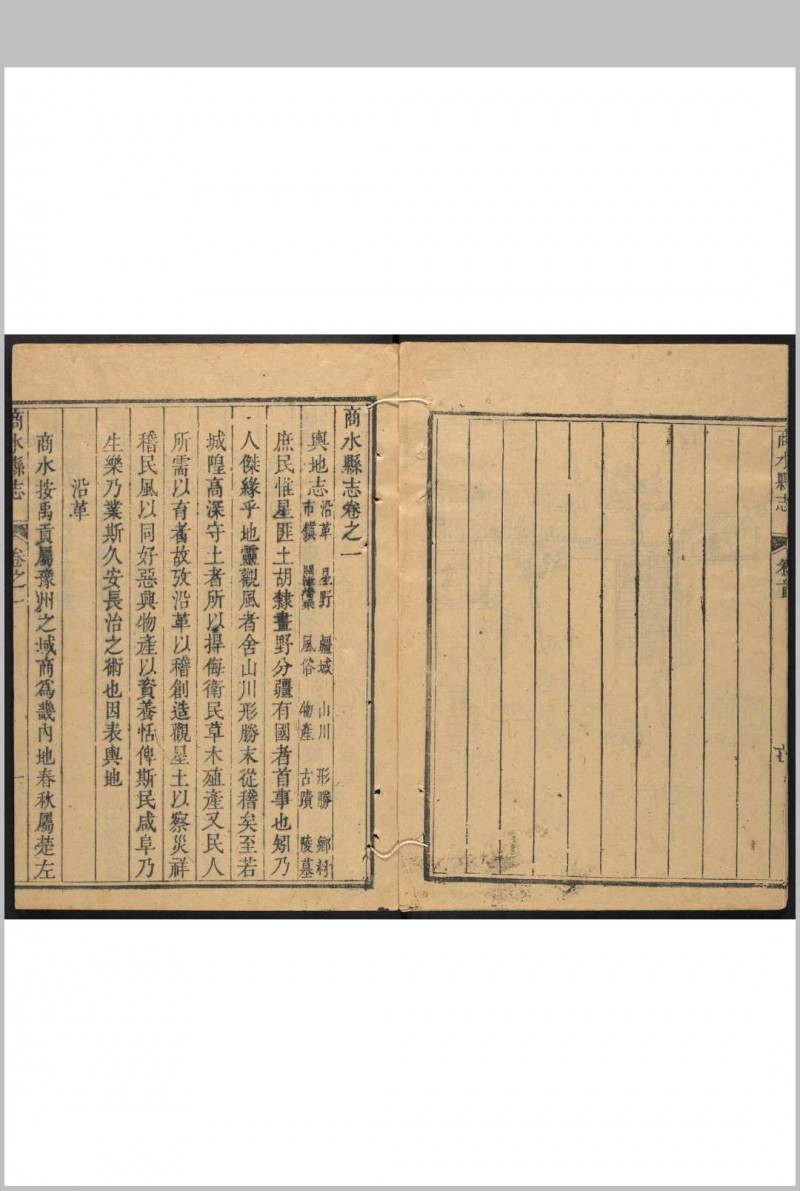 商水縣志
卷首
商水縣志卷之一
輿地志 沿革 星野 疆域 山川 形勝 鄉村
市鎮 風俗 物產 古蹟 陵墓
庶民惟星匪土胡隸畫野分疆有國者首事也矧乃
人傑緣乎地靈觀風者舍山川形勝末從稽矣至若
城隍高深守土者所以捍侮衛民草木殖產又民人
所需以有者故攷沿革以稽創造觀星土以察災祥
稽民風以同好惡興物產以資養恬俾斯民咸阜乃
生樂乃業斯久安長治之術也因表輿地
沿革
商水按禹貢屬豫州之域商爲畿內地春秋屬楚左
商水縣志
卷之一
一